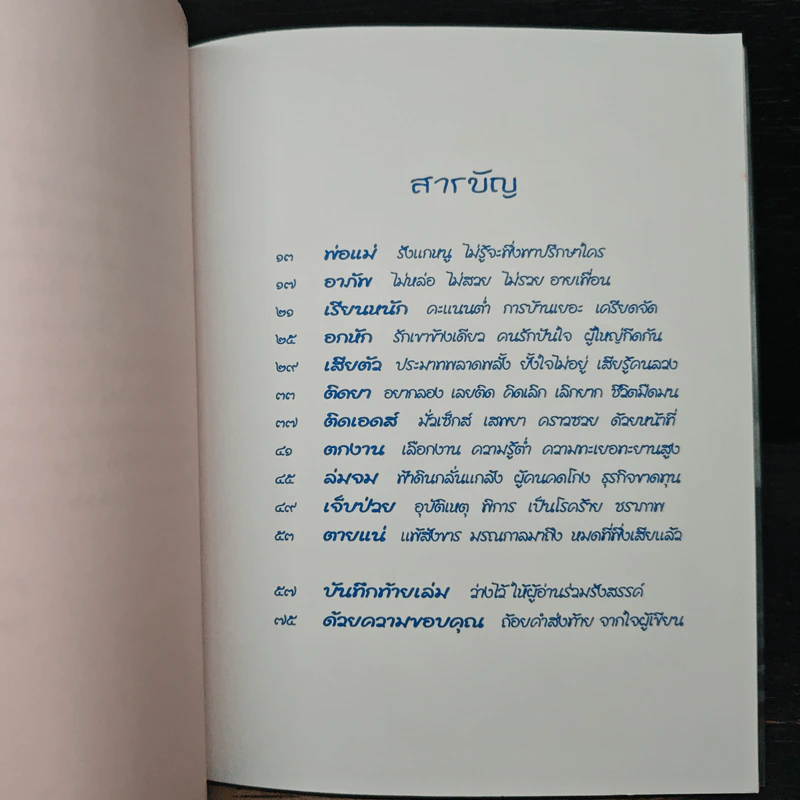 สารบัญ
๑๓ พ่อแม่ รังแกหนู ไม่รู้จะพึ่งพาปรึกษาใคร
๑๗ อาภัพ ไม่หล่อ ไม่สวย ไม่รวย อายเพื่อน
๒๑ เรียนหนัก คะแนนต่ำ การบ้านเยอะ เครียดจัด
๒๕ อกหัก รักเขาข้างเดียว คนรักปันใจ ผู้ใหญ่กีดกัน
๒๙ เสียตัว ประมาทพลาดพลั้ง ยั้งใจไม่อยู่ เสียรู้คนลวง
๓๓ ติดยา อยากลอง เลยติด คิดเลิก เลิกยาก ชีวิตมืดมน
๓๗ ติดเอดส์ มั่วเซ็กส์ เสพยา คราวซวย ด้วยหน้าที่
๔๑ ตกงาน เลือกงาน ความรู้ต่ำ ความทะเยอทะยานสูง
๔๕ ล่มจม ฟ้าดินกลั่นแกล้ง ผู้คนคดโกง ธุรกิจขาดทุน
๔๙ เจ็บป่วย อุบัติเหตุ พิการ เป็นโรคร้าย ชราภาพ
๕๓ ตายแน่ แพ้สังขาร มรณกาลมาถึง หมดที่พึ่งเสียแล้ว
๕๗ บันทึกท้ายเล่ม ว่างไว้ ให้ผู้อ่านร่วมรังสรรค์
๗๕ ด้วยความขอบคุณ ถ้อยคำส่งท้าย จากใจผู้เขียน